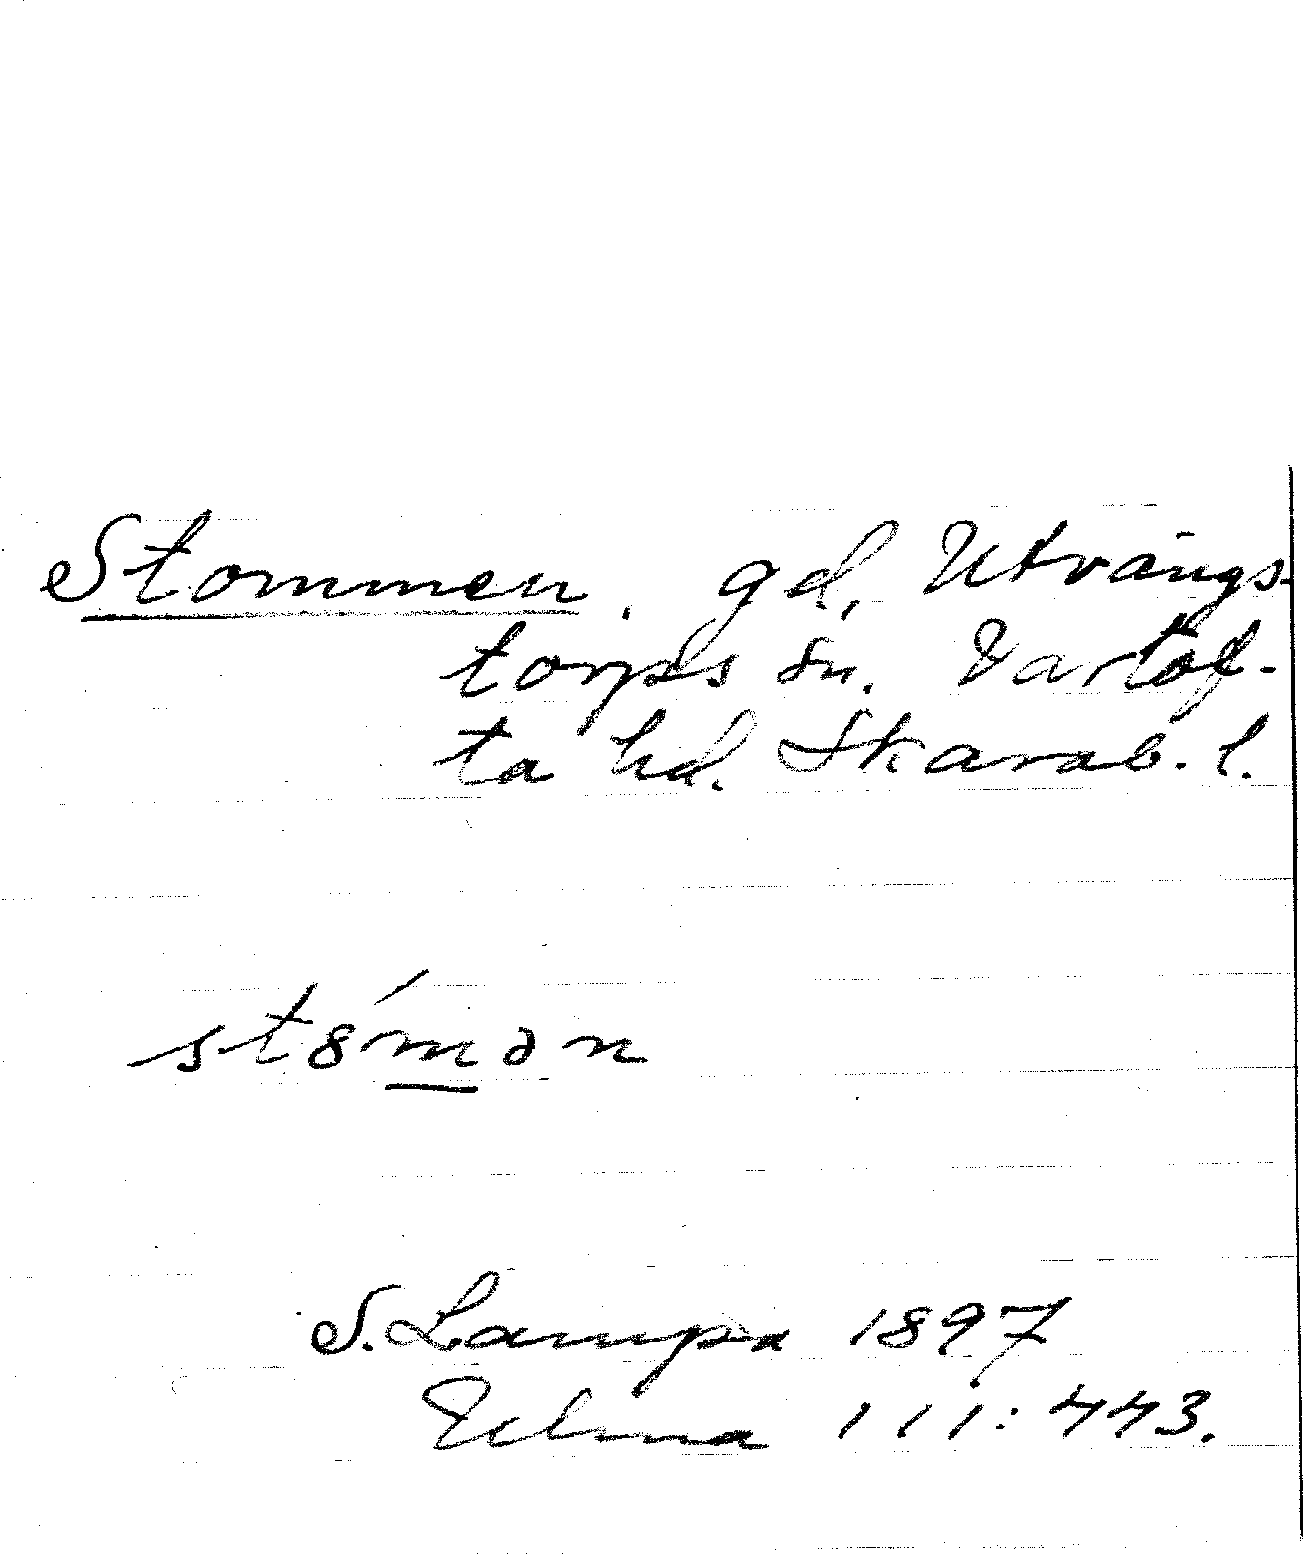 Stommen. gd, Utvängs-
torps sn. Vartof-
ta hd. Skarab. l.
st8́mən
S. Lampa 1897
Ulma 111:443.